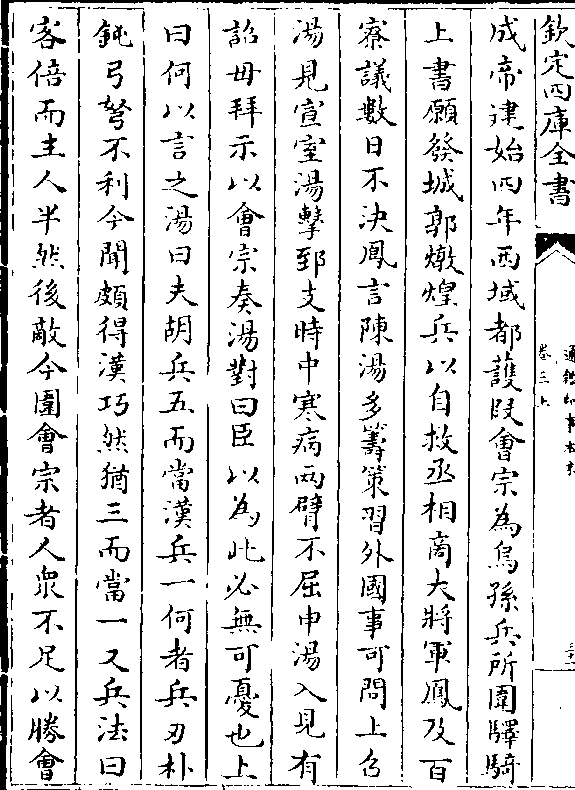 欽定四庫全書
通鑑紀事本末
卷三上
成帝建始四年西域都護段會宗為烏孫兵所圍驛騎
上書願發城郭燉煌兵以自救丞相商大將軍鳳及百
寮議數日不決鳳言陳湯多籌策習外國事可問上召
湯見宣室湯擊郅支時中寒病兩臂不屈申湯入見有
詔毋拜示以會宗奏湯對曰臣以為此必無可憂也上
曰何以言之湯曰夫胡兵五而當漢兵一何者兵刃朴
鈍弓弩不利今聞頗得漢巧然猶三而當一又兵法曰
客倍而主人半然後敵今圍會宗者人衆不足以勝會